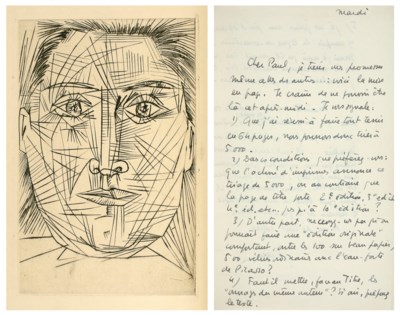 mardi
Cher Paul, je tiens mes promesses
même celles des autres : voici la mise
en pag. Je crains de ne pouvoir être
là cet après-midi. Je vous signale :
1) Que j'ai réussi à faire tout tenir
en 64 pages, nous pouvons donc tirer à
5.000.
2) Dans ces conditions que préférez-vous :
que l'achevé d'imprimer annonce ce
tirage de 5.000, ou au contraire que
la page de titre porte 2e édition, 3e édit.
4e éd. etc. jusqu'à la édition ?
3) D'autre part, ne croyez-vous pas qu'on
pourrait faire une "édition originale"
comportant, outre les 100 sur beau papier,
500 ordinaire avec l'eau-forte
de Picasso ?
4) Faut-il mettre, faux titre, les
"ouvrages du même auteur" ? Si oui, préparez
le texte.